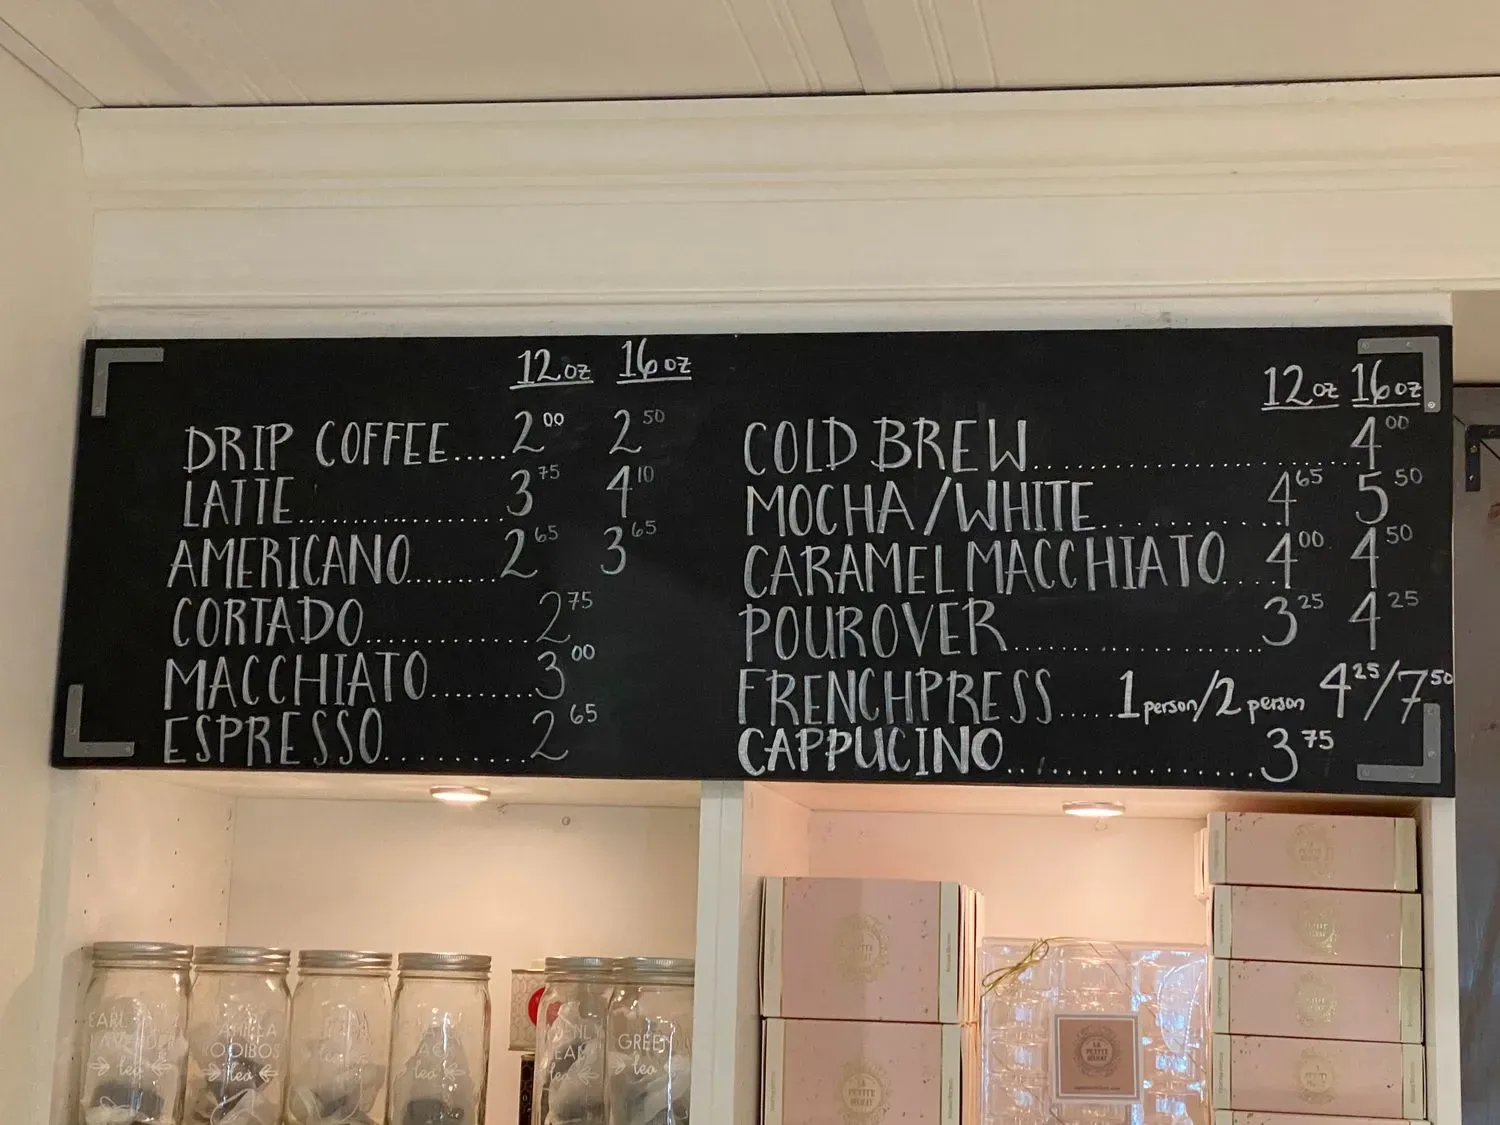 12oz 16oz
DRIP COFFEE.....2.00 2.50
LATTE..................3.75 4.10
AMERICANO........2.65 3.65
CORTADO..............2.75
MACCHIATO.........3.00
ESPRESSO...........2.65
12oz 16oz
COLD BREW..........................4.00
MOCHA/WHITE.............4.65 5.50
CARAMEL MACCHIATO....4.00 4.50
POUROVER....................3.25 4.25
FRENCHPRESS.....1person/2person 4.25/7.50
CAPPUCINO....................3.75
EARL
tea
OOIBOS
tea
tea
tea
GREEN
tea
LA
PETITE